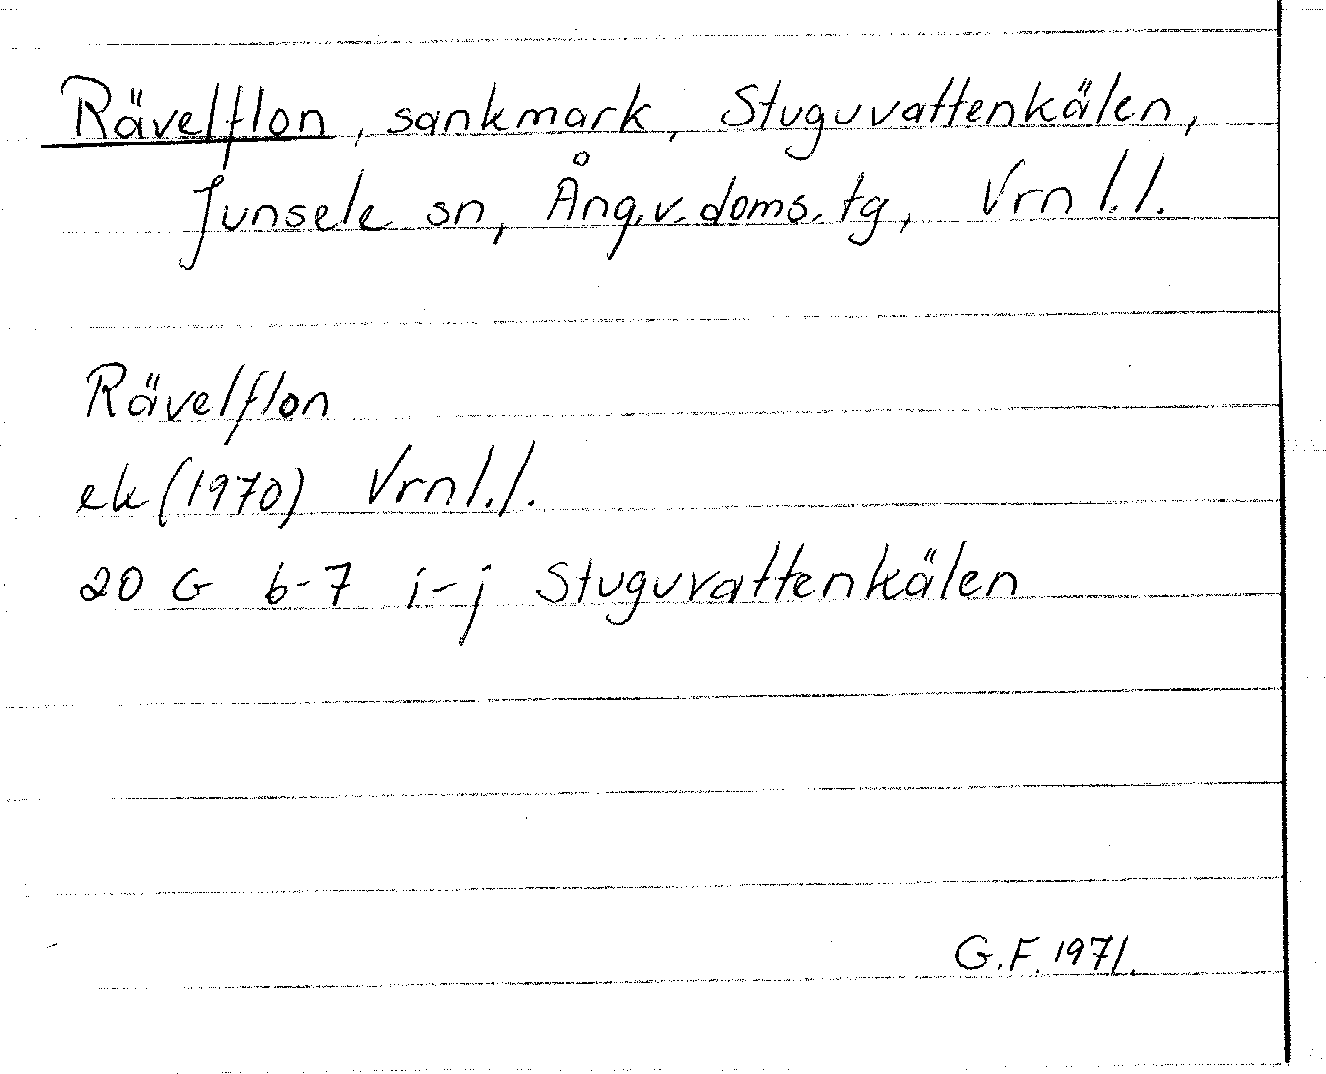 Rävelflon, sankmark, Stuguvattenkälen,
Junsele sn, Ång.v.doms.tg, Vrn l.l.
Rävelflon
ek (1970) Vrn l.l.
20 G 6-7 i-j Stuguvattenkälen
G.F. 1971.